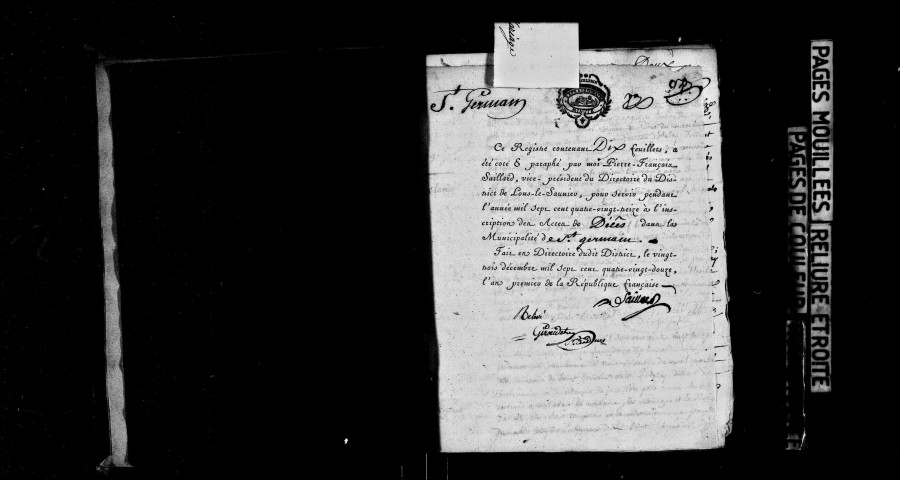 Mariage
St. Germain
Ce Registre contenant Dix feuillets, a
été coté & paraphé par moi Pierre-François
Saillard, vice-président du Directoire du Dis-
trict de Lons-le-Saunier, pour servir pendant
l'année mil sept cent quatre-vingt-treize à l'ins-
cription des Actes de Décès dans la
Municipalité de St. germain.
Fait en Directoire dudit District, le vingt-
trois décembre mil sept cent quatre-vingt-douze,
l'an premier de la République française
Saillard
PAGES MOUILLEES RELIURE ETROITE
PAGES DE COULEUR